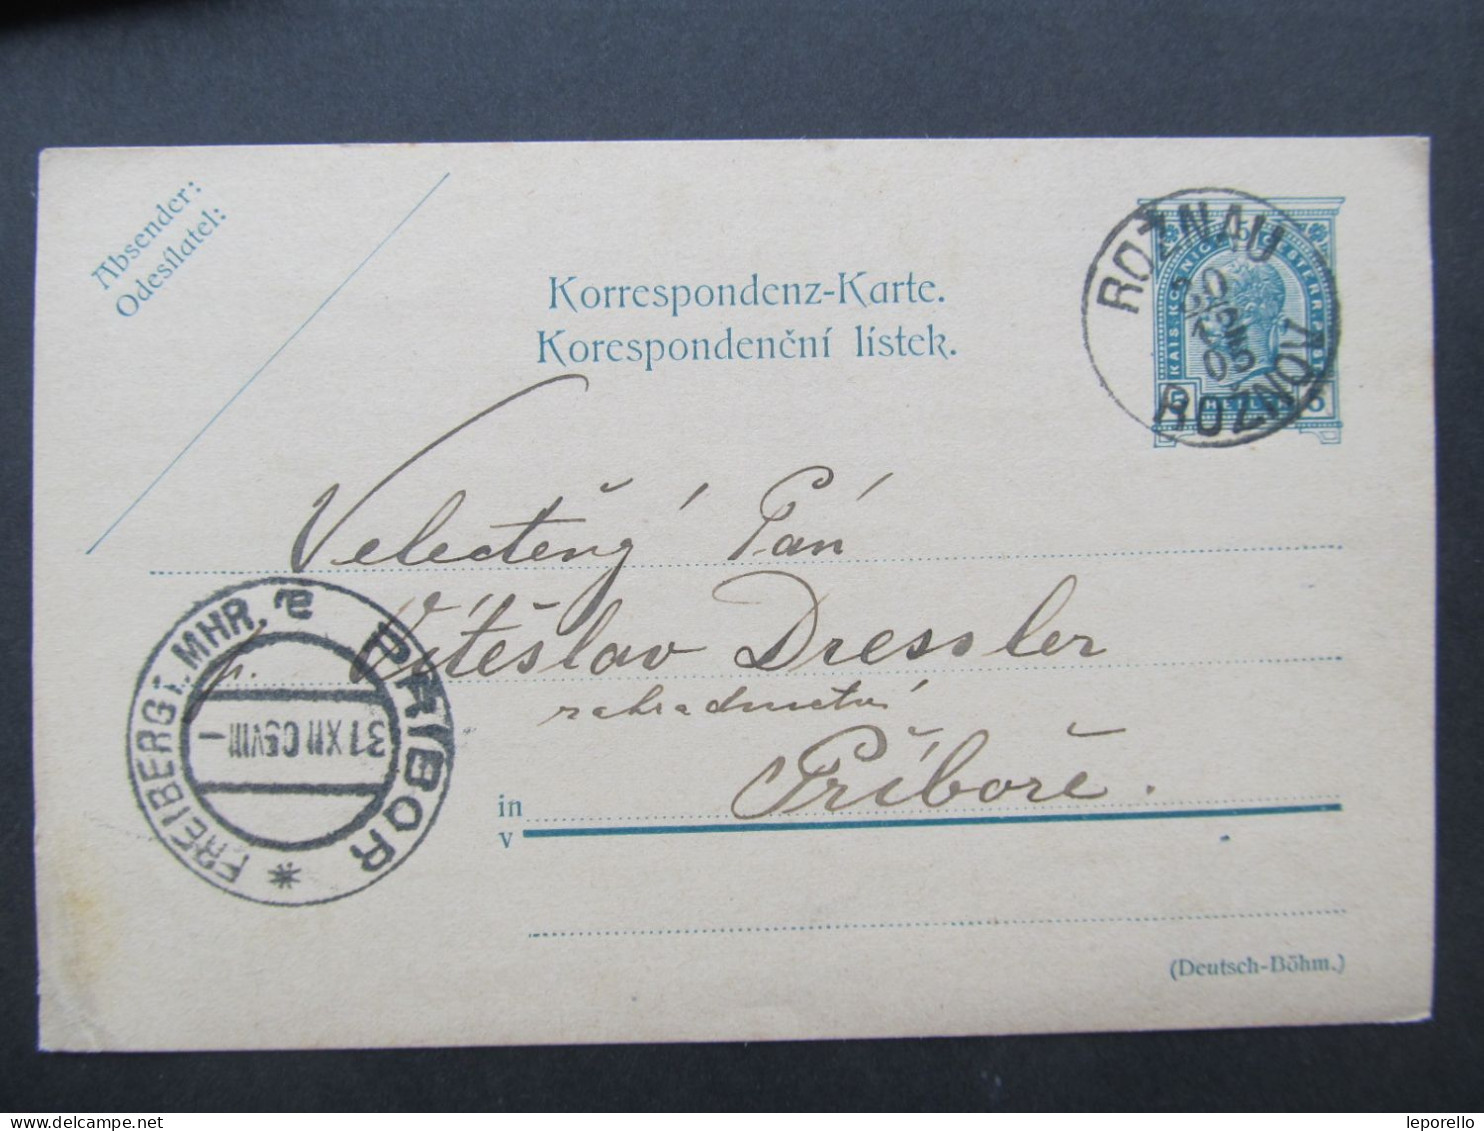 Absender:
Odesílatel:
Korrespondenz-Karte.
Korespondenční lístek.
ROŽNAU
30
12
05
ROŽNOV
KAIS. KÖNIGL. ÖSTERR. P
5
5
Velectěný Pán
p. Vítěslav Dressler
zahradnictví
in Příboře.
v
FREIBERG i. MHR.
PŘÍBOR
31 XII 05 VIII
(Deutsch-Böhm.)
delcampe.net
leporello